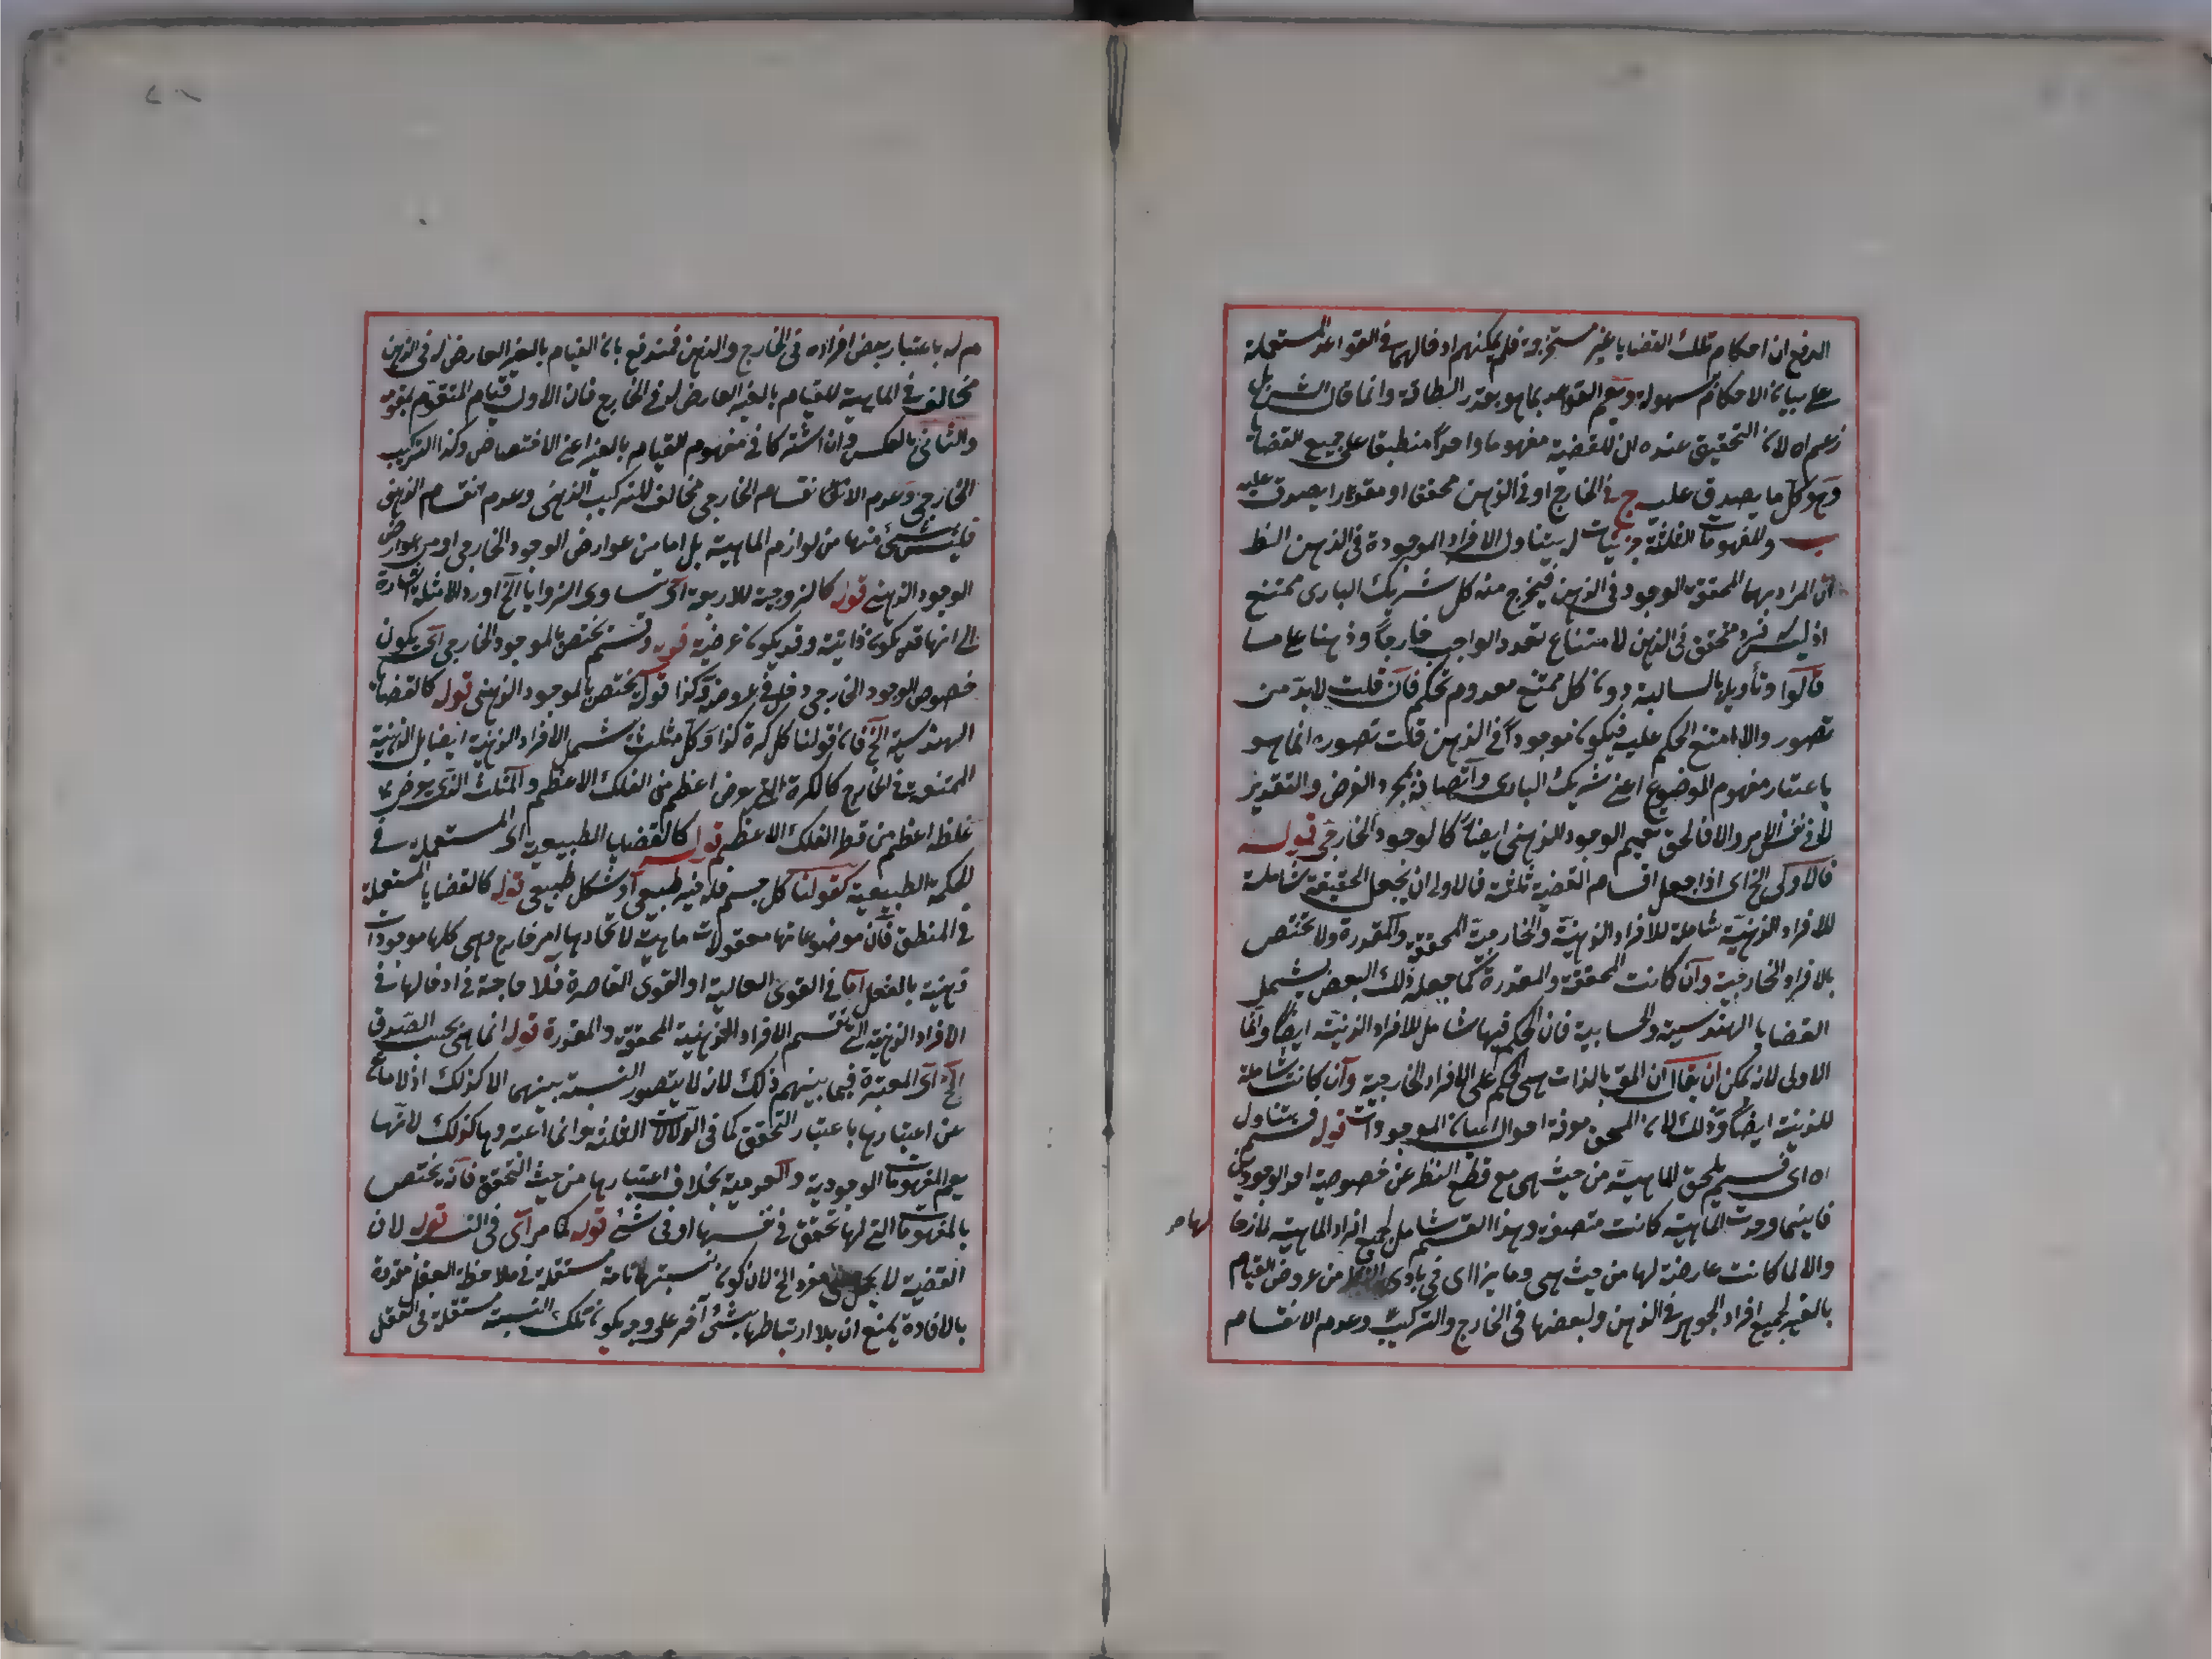 الدفع ان احكام تلك القضايا غير مستخرجة فلم يمكنهم ادخالها في القواعد المستعملة
على بيان الاحكام بسهولة وتعميم القواعد بما هو بقدر الطاقة وانما قال الش بل
زعم اه لان التحقيق عنده ان للقضية مفهوما واحدا منطبقا على جميع القضايا
وهو كل ما يصدق عليه ج في الخارج او في الذهن محققا او مقدرا يصدق عليه
ب والمفهومات الثلثة جزئيات له يتناول الافراد الموجودة في الذهن الظ
ان المراد بها المحققة الوجود في الذهن فيخرج منه كل شريك الباري ممتنع
اذ ليس له فرد محقق في الذهن لامتناع تعدد الواجب خارجا وذهنا على ما
قالوا وتأويله بالسالبة دون كل ممتنع معدوم تحكم فان قلت لابد من
تصور والا امتنع الحكم عليه فيكون موجودا في الذهن قلت تصوره انما هو
باعتبار مفهوم الموضوع اعني شريك الباري واتصافه بمجرد الفرض والتقدير
لا في نفس الامر والا فالحق تعميم الوجود الذهني ايضا كالوجود الخارجي قوله
فالاولى الخ اى اذا جعل اقسام القضية ثلثة فالاولى ان يجعل الحقيقة شاملة
للافراد الذهنية شاملة للافراد الذهنية والخارجية المحققة والمقدرة ولا تختص
بالافراد الخارجية وان كانت المحققة والمقدرة كما جعله ذلك البعض ليشمل
القضايا الهندسية والحسابية فان الحكم فيها شامل للافراد الذهنية ايضا وانما
الاولى لانه يمكن ان يقال ان المق بالذات هي الحكم على الافراد الخارجية وان كانت شاملة
للذهنية ايضا وذلك لان المبحوث معرفة احوال اعيان الموجودات قوله قسم يتناول
اه اى قسم يلحق الماهية من حيث هي مع قطع النظر عن خصوصية احد الوجودين
فاينما وجدت الماهية كانت متصفة وهذا القسم شامل لجميع افراد الماهية لازما
لها مر
والا لما كانت عارضة لها من حيث هي وما يرى اى في بادى النظر من عروض القيام
بالغير لجميع افراد الجوهر في الذهن ولبعضها في الخارج والتركيب وعدم الانقسام
له باعتبار بعض افراده في الخارج والذهن فمندفع بان القيام بالغير العارض له في الذهن
مخالف في الماهية للقيام بالغير العارض له في الخارج فان الاول قيام المتقوم بمقوم
والثاني بالعكس وان اشتركا في مفهوم القيام بالغير اعني الاختصاص وكذا التركيب
الخارجي وعدم الانقسام الخارجي مخالف للتركيب الذهني وعدم انقسام الذهني
فليس شئ منها من لوازم الماهية بل اما من عوارض الوجود الخارجي او من عوارض
الوجود الذهني قوله كالزوجية للاربعة اى تساوى الزوايا الخ اورد الامثلة اشارة
الى انها قد يكون ذاتية وقد يكون عرضية قوله وقسم يختص بالموجود الخارجي اى يكون
خصوص الوجود الخارجي دخل في عروضه وكذا قوله يختص بالموجود الذهني قوله كالقضايا
الهندسية الخ فان قولنا كل كرة كذا وكل مثلث يشمل الافراد الذهنية ايضا بل الذهنية
الممتنعة في الخارج كالكرة التى يفرض اعظم من الفلك الاعظم والمثلث الذى يفرض
غلظه اعظم من قطر الفلك الاعظم قوله كالقضايا الطبيعية اى المستعملة في
الحكمة الطبيعية كقولنا كل جسم فله حيز طبيعي او شكل طبيعي قوله كالقضايا المستعملة
في المنطق فان موضوعاتها معقولات ما هية لا تحاذيها امر خارج وهي كلها موجودات
ذهنية بالفعل اما في القوى العالية او القوى القاصرة فلا حاجة في ادخالها في
الافراد الذهنية الى تقسيم الافراد الذهنية المحققة والمقدرة قوله انما هي بحسب الصدق
الخ اى المعتبرة فيما بينهم ذلك لانه لا يتصور النسبة بينهما الا كذلك اذ لا مانع
عن اعتبارها باعتبار التحقق كما في الدلالات الثلثة وانما اعتبروها كذلك لانها
يعم المفهومات الوجودية والعدمية بخلاف اعتبارها من حيث التحقق فانه يختص
بالمفهومات التى لها تحقق في نفسها او في شئ قوله كما مر اى في النسب قوله لان
القضية لا يحمل على مفرد الخ لان كون نسبتها تامة مستقلة في ملاحظة العقل مفيدة
بالافادة يمنع ان بلا ارتباطها بشئ آخر على وجه يكون تلك النسبة مستقلة في العقل